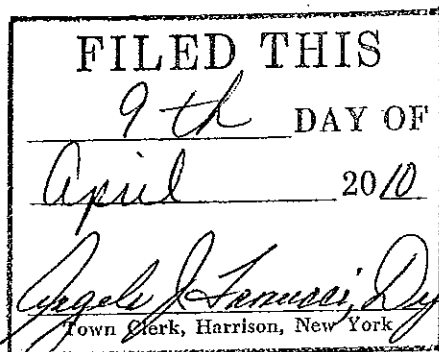 FILED THIS
9th DAY OF
April 2010
Angela J. Dy
Town Clerk, Harrison, New York